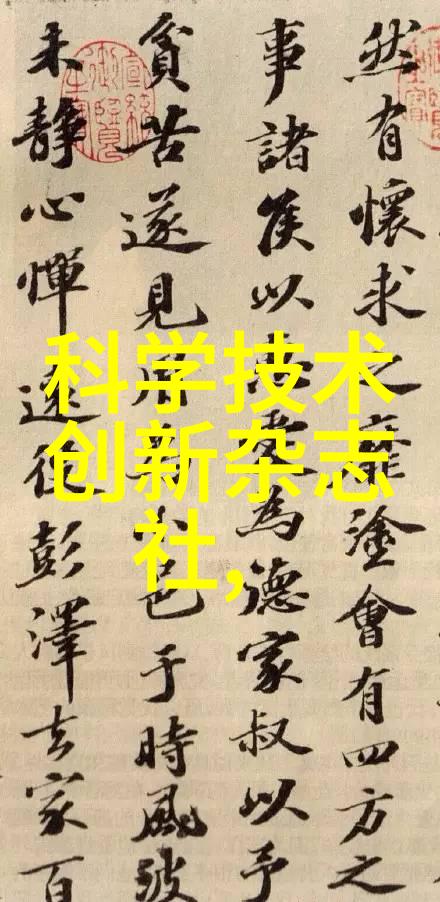 科学技术
创新杂志
社,
然有懷求之靡塗會有四方之
事諸侯以惠愛為德家叔以予
貧苦遂見用為小邑于時風波
未靜心憚遠役彭澤去家百